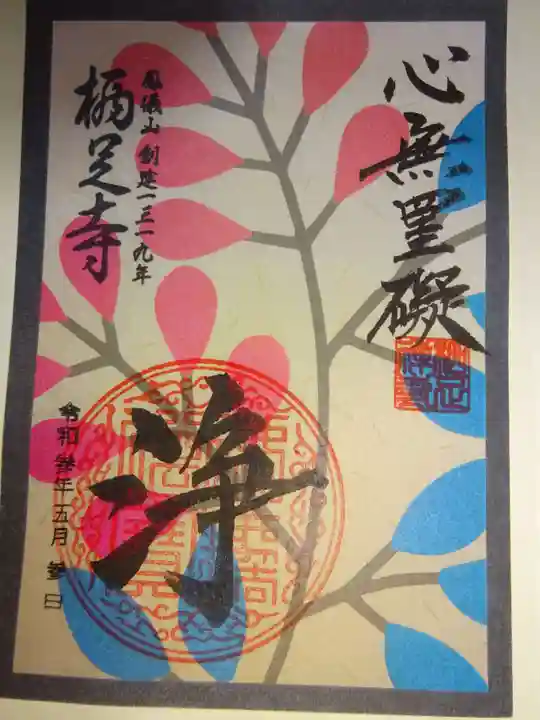 心無罣礙
鳳儀山 創建一三一九年
栖足寺
浄
令和参年五月参日